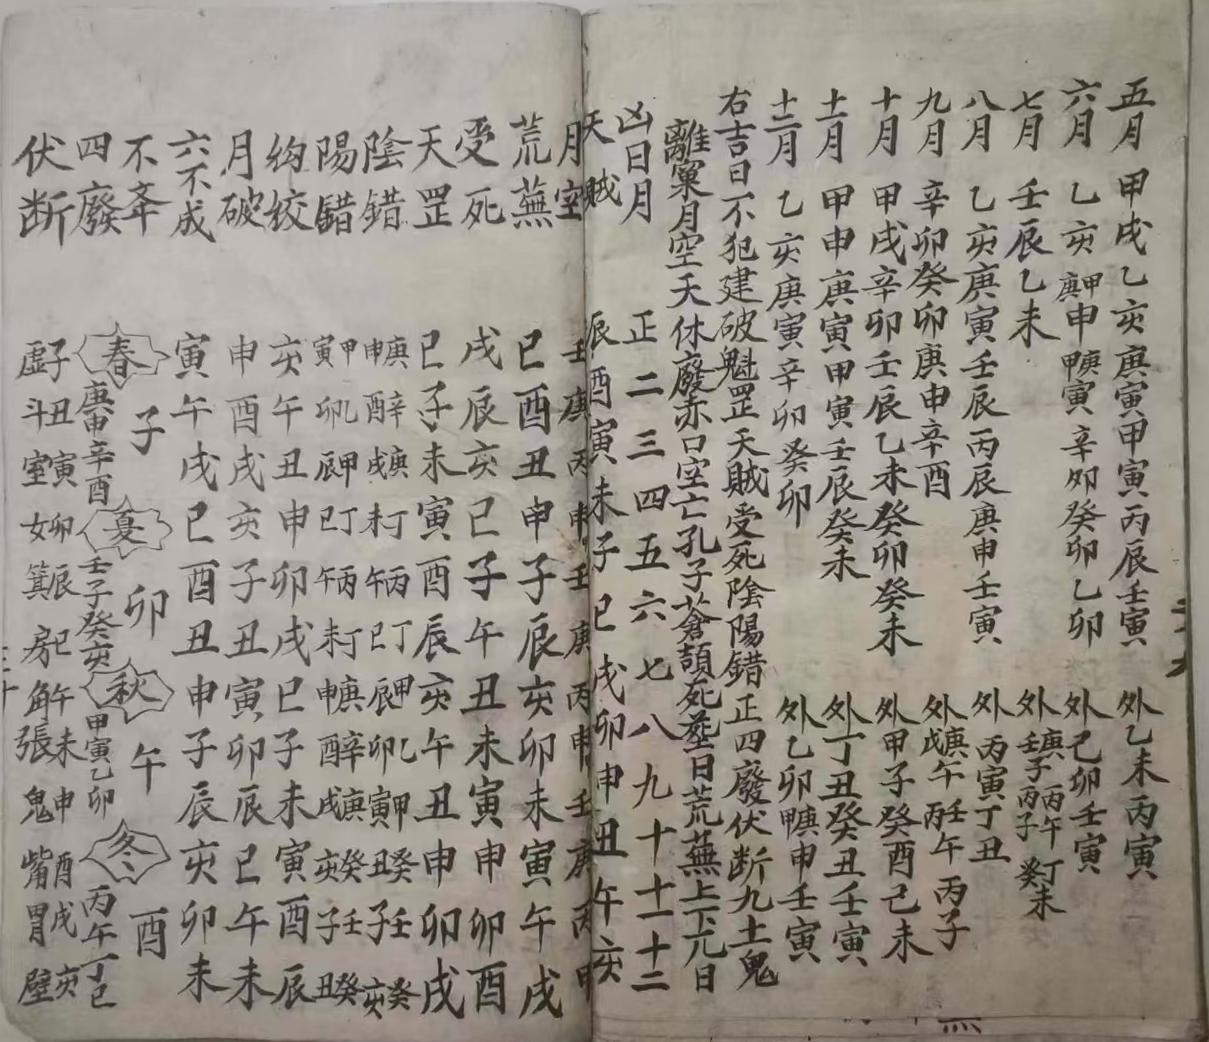 五月 甲戌乙亥庚寅甲寅丙辰壬寅 外乙未丙寅
六月 乙亥庚甲申甲庚寅辛卯癸卯乙卯 外己卯壬寅
七月 壬辰乙未 外壬子庚丙子丙午癸丁未
八月 乙亥庚寅壬辰丙辰庚申壬寅 外丙寅丁丑
九月 辛卯癸卯庚申辛酉 外戊庚午丙壬午丙子
十月 甲戌辛卯壬辰乙未癸卯癸未 外甲子癸酉己未
十一月 甲申庚寅甲寅壬辰癸未 外丁丑癸丑壬寅
十二月 乙亥庚寅辛卯癸卯 外乙卯甲庚申壬寅
右吉日不犯建破魁罡天賊受死陰陽錯正四廢伏断九土鬼
離窠月空天休廢赤口空亡孔子蒼頡死塟日荒蕪上下元日
凶日月 正二三四五六七八九十十一十二
天賊 辰酉寅未子巳戌卯申丑午亥
月空 壬庚丙申壬庚丙申壬庚丙甲
荒蕪 巳酉丑申子辰亥卯未寅午戌
受死 戌辰亥巳子午丑未寅申卯酉
天罡 巳子未寅酉辰亥午丑申卯戌
陰錯 庚申辛酉庚戌丁未丙午丁巳甲辰乙卯甲寅癸丑壬子癸亥
陽錯 甲寅乙卯甲辰丁巳丙午丁未庚申辛酉庚戌癸亥壬子癸丑
鈎絞 亥午丑申卯戌巳子未寅酉辰
月破 申酉戌亥子丑寅卯辰巳午未
六不成 寅午戌巳酉丑申子辰亥卯未
不夲 子 卯 午 酉
四廢 春 庚申辛酉 夏 壬子癸亥 秋 甲寅乙卯 冬 丙午丁巳
伏断 子虛丑斗寅室卯女辰箕巳房午角未張申鬼酉觜戌胃亥壁